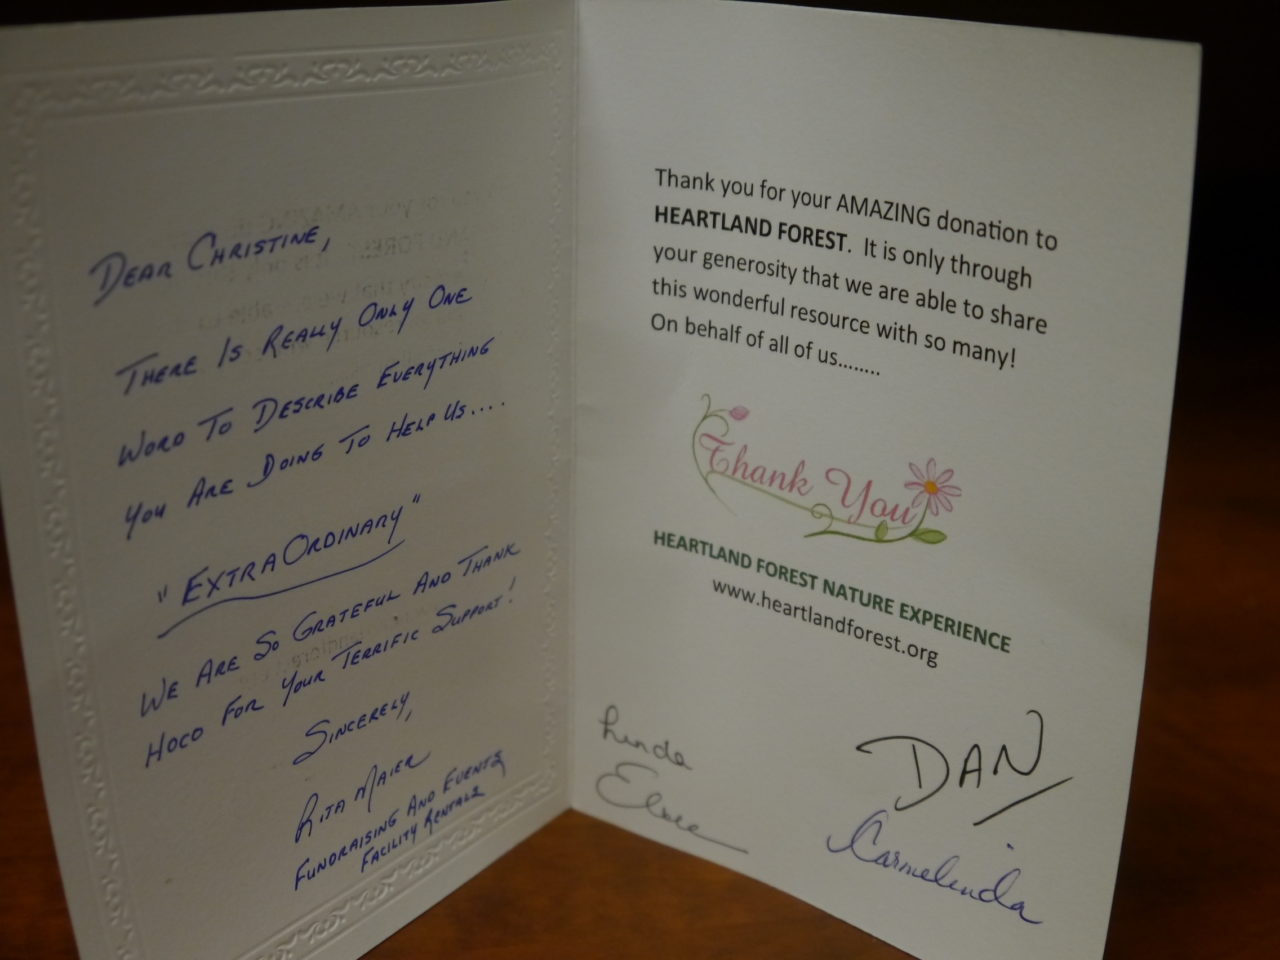 DEAR CHRISTINE,
THERE IS REALLY ONLY ONE
WORD TO DESCRIBE EVERYTHING
YOU ARE DOING TO HELP US....
"EXTRAORDINARY"
WE ARE SO GRATEFUL AND THANK
HOCO FOR YOUR TERRIFIC SUPPORT!
SINCERELY,
RITA MAIER
FUNDRAISING AND EVENTS
FACILITY RENTALS
Thank you for your AMAZING donation to
HEARTLAND FOREST. It is only through
your generosity that we are able to share
this wonderful resource with so many!
On behalf of all of us........
Thank You
HEARTLAND FOREST NATURE EXPERIENCE
www.heartlandforest.org
Linda
DAN
Carmelinda